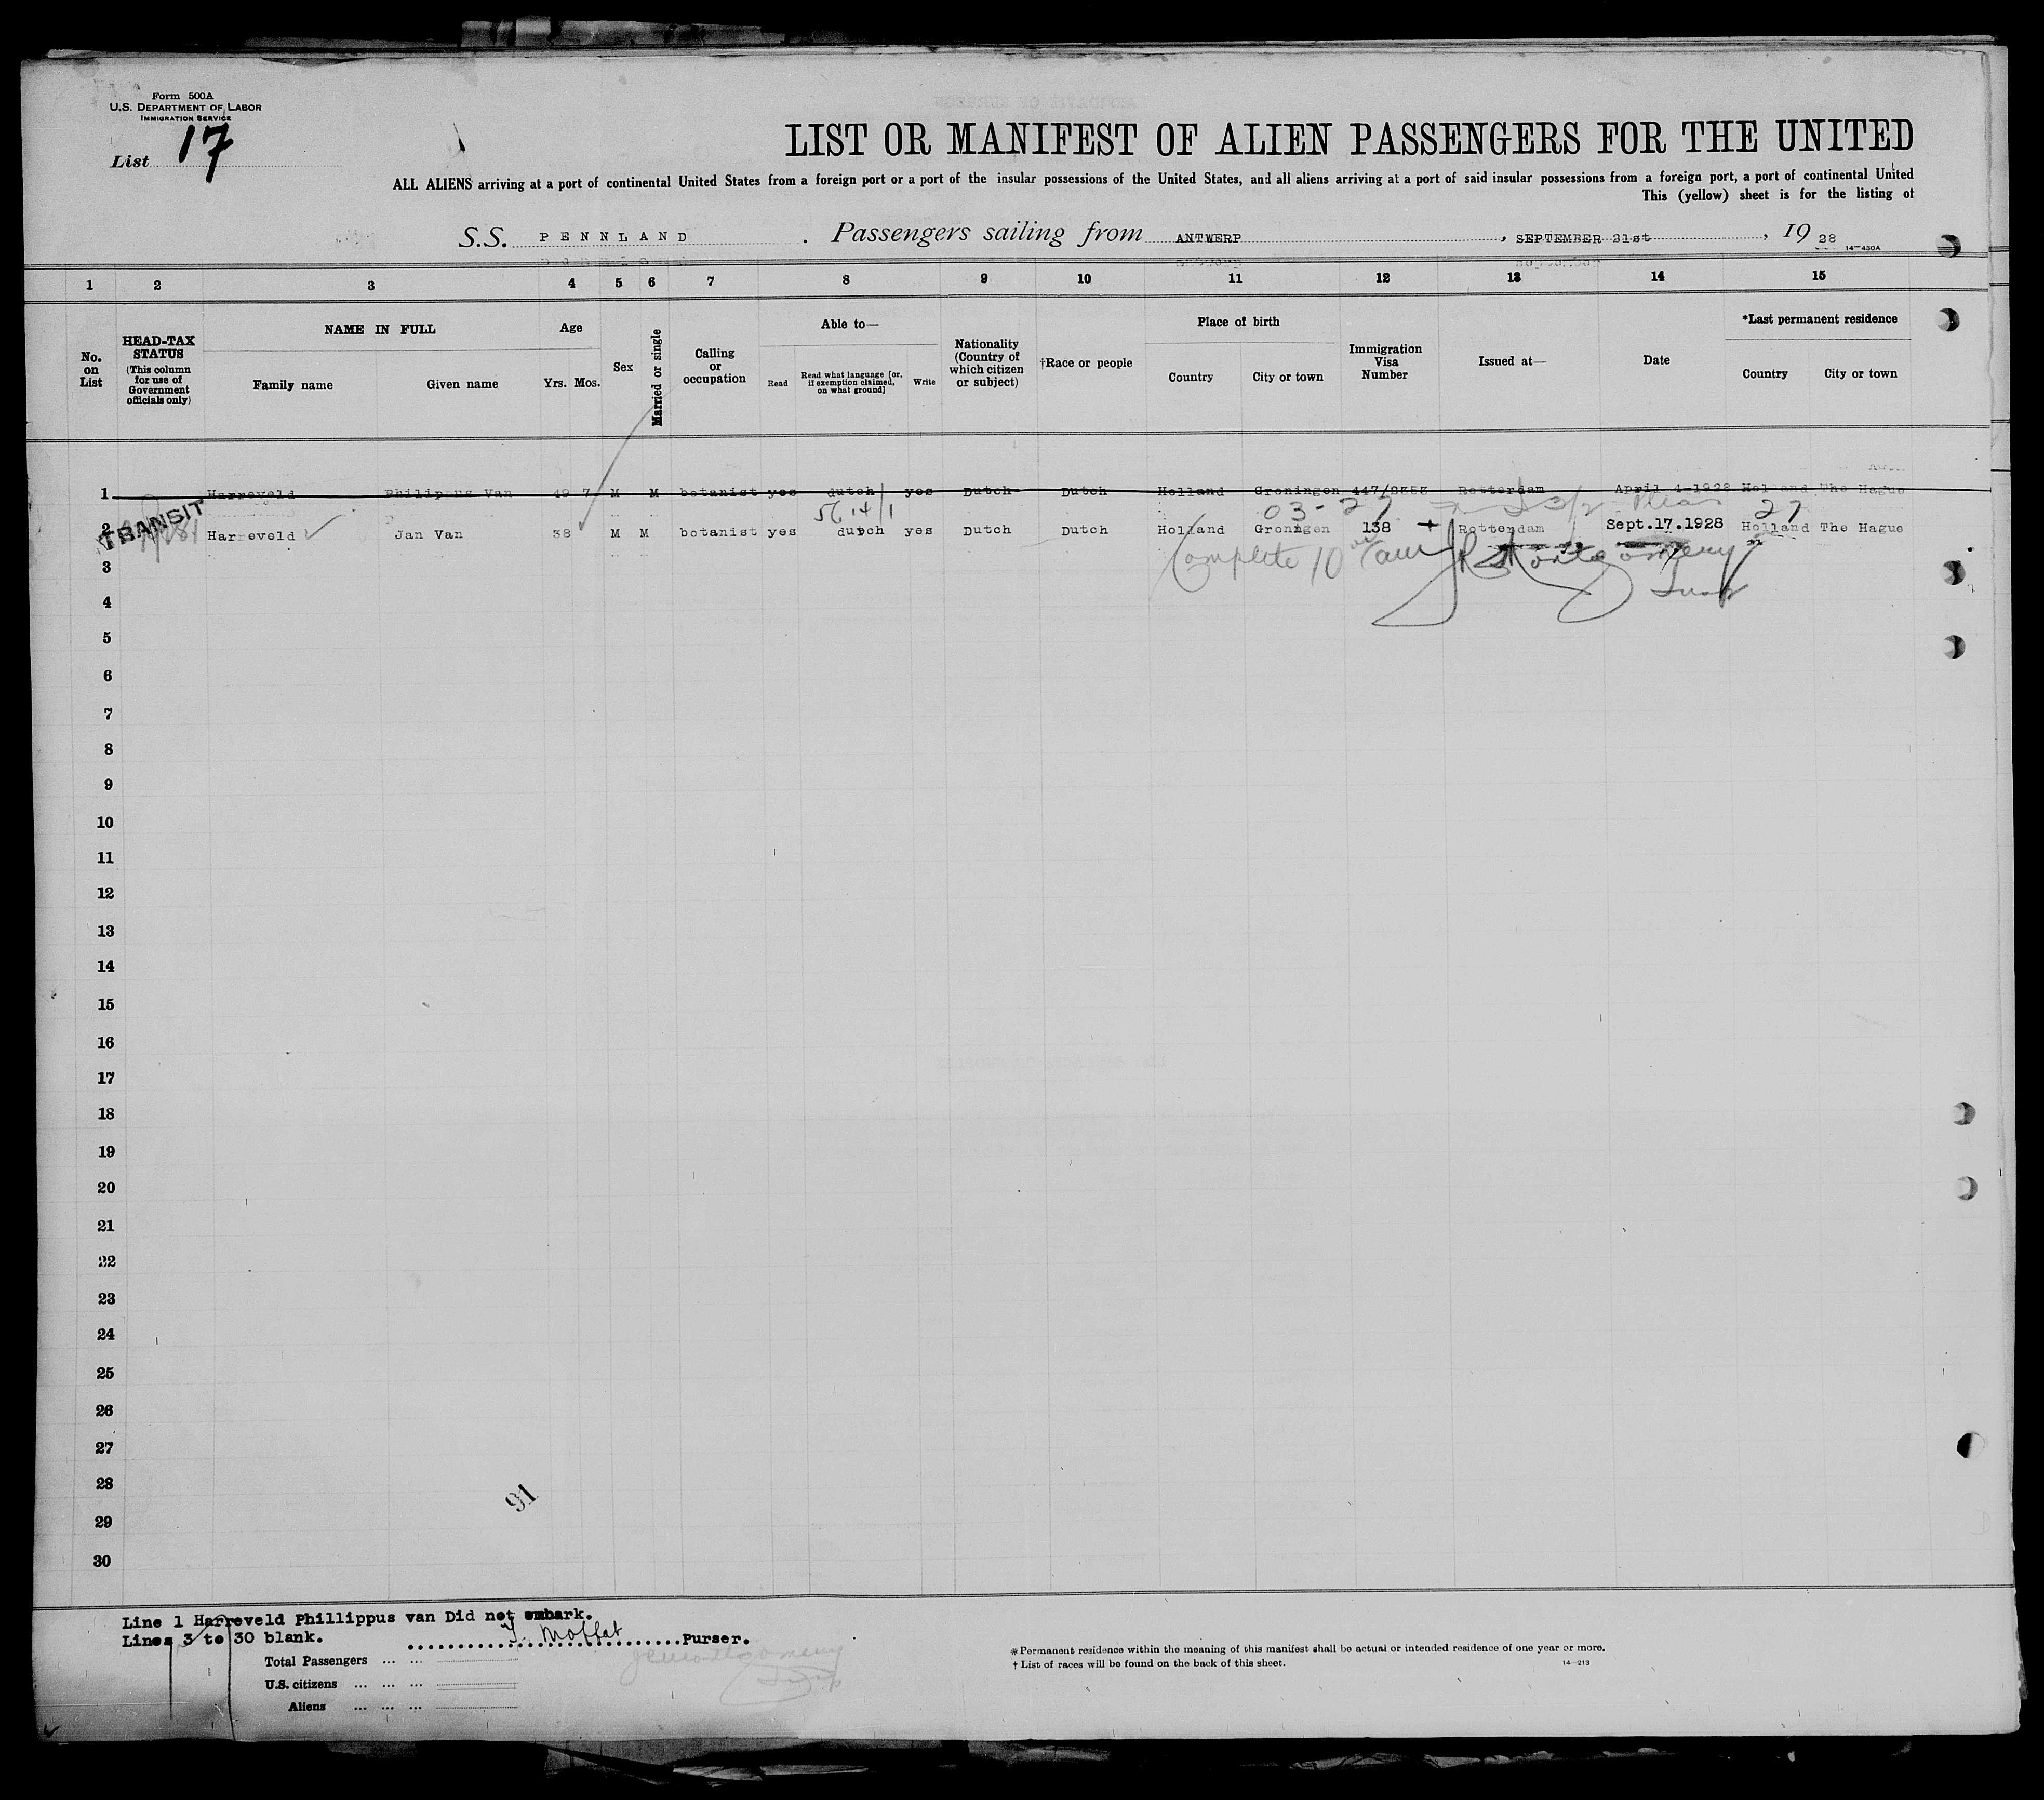 Form 500A
U.S. DEPARTMENT OF LABOR
IMMIGRATION SERVICE
List 17
LIST OR MANIFEST OF ALIEN PASSENGERS FOR THE UNITED
ALL ALIENS arriving at a port of continental United States from a foreign port or a port of the insular possessions of the United States, and all aliens arriving at a port of said insular possessions from a foreign port, a port of continental United
This (yellow) sheet is for the listing of
S.S. PENNLAND . Passengers sailing from ANTWERP , SEPTEMBER 21st , 19 28
14—430A
1 2 3 4 5 6 7 8 9 10 11 12 13 14 15
No. on List
HEAD-TAX STATUS (This column for use of Government officials only)
NAME IN FULL
Family name Given name
Age
Yrs. Mos.
Sex
Married or single
Calling or occupation
Able to—
Read
Read what language [or, if exemption claimed, on what ground]
Write
Nationality (Country of which citizen or subject)
†Race or people
Place of birth
Country City or town
Immigration Visa Number
Issued at—
Date
*Last permanent residence
Country City or town
1 Harreveld Philippus Van 49 7 M M botanist yes dutch yes Dutch Dutch Holland Groningen Rotterdam April 4-1928 Holland The Hague
5614/1 03-27 27
TRANSIT
2 Harreveld Jan Van 38 M M botanist yes dutch yes Dutch Dutch Holland Groningen 138 + Rotterdam Sept.17.1928 Holland The Hague
Complete 10 Montgomery
3
Insp
4
5
6
7
8
9
10
11
12
13
14
15
16
17
18
19
20
21
22
23
24
25
26
27
28
91
29
30
Line 1 Harreveld Phillippus van Did not embark.
Lines 3 to 30 blank. T. Moffat Purser.
Total Passengers ... ...
U.S. citizens ... ... ...
Aliens ... ... ...
* Permanent residence within the meaning of this manifest shall be actual or intended residence of one year or more.
† List of races will be found on the back of this sheet. 14—213